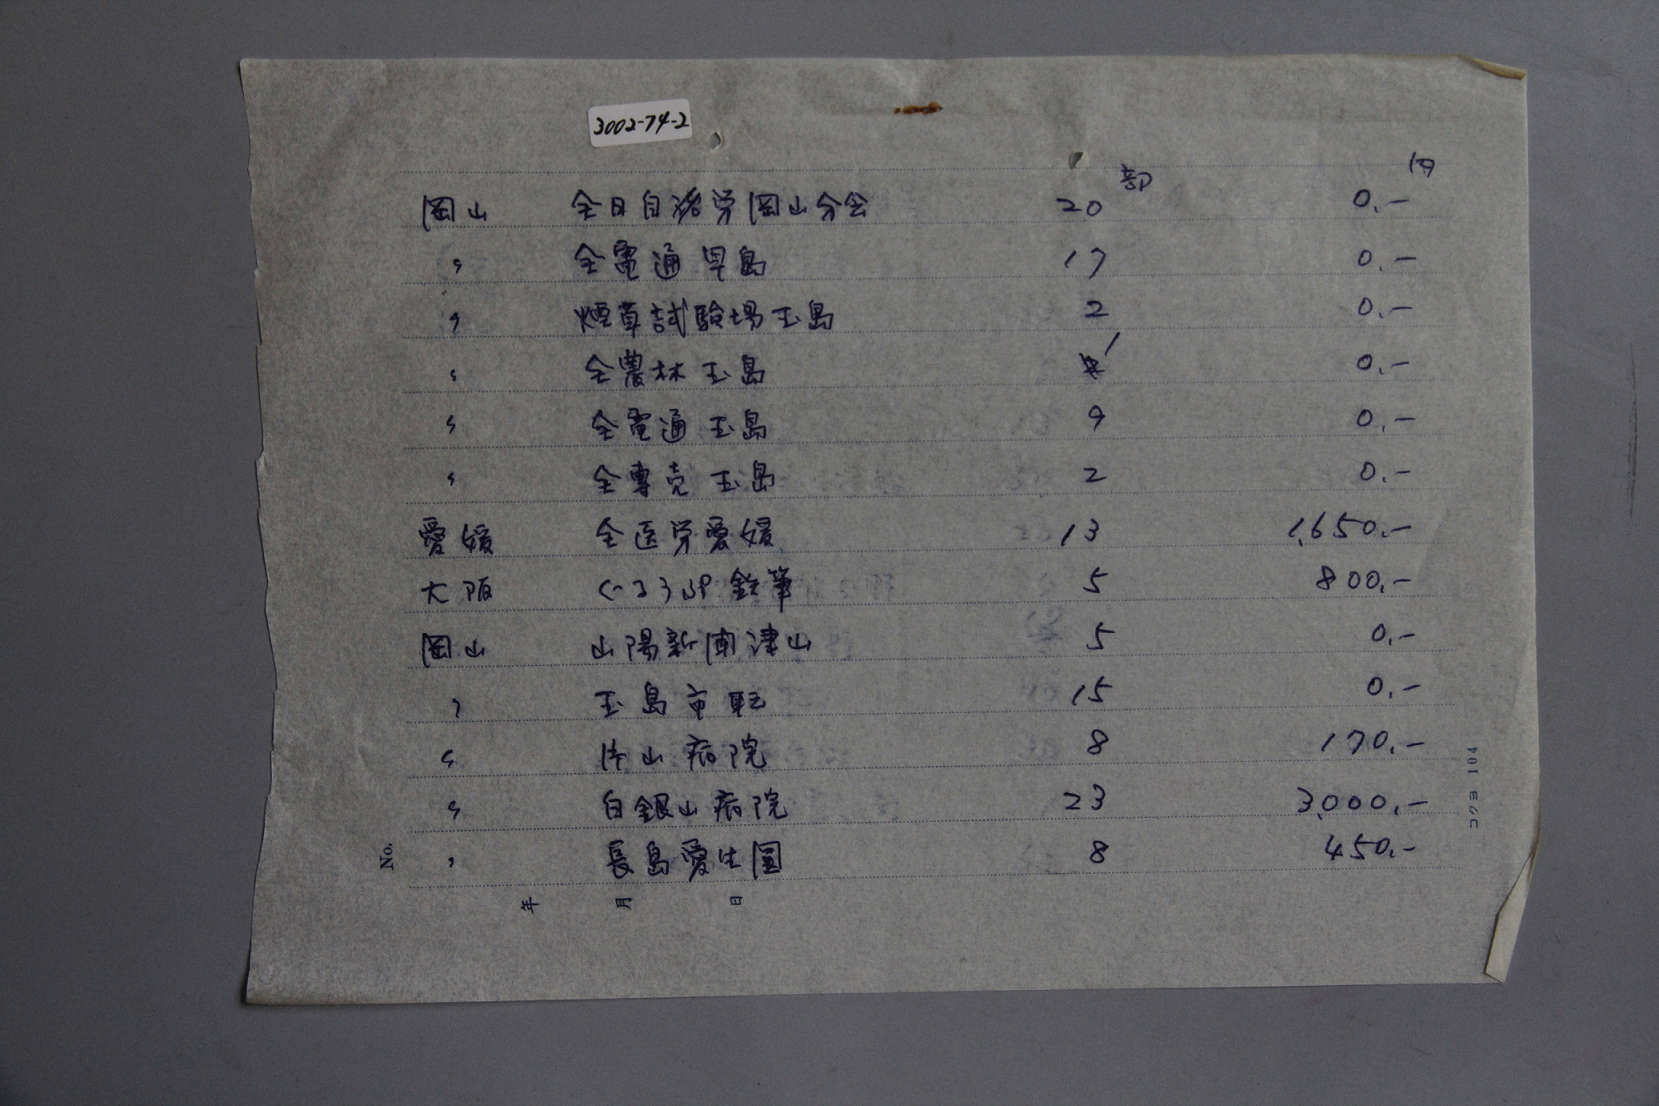 3002-74-2
部 円
岡山 全日自労岡山分会 20 0.-
〃 全電通早島 17 0.-
〃 煙草試験場玉島 2 0.-
〃 全農林玉島 1 0.-
〃 全電通玉島 9 0.-
〃 全専売玉島 2 0.-
愛媛 全医労愛媛 13 1,650.-
大阪 鉛筆 5 800.-
岡山 山陽新聞津山 5 0.-
〃 玉島市職 15 0.-
〃 片山病院 8 170.-
〃 白銀山病院 23 3,000.-
〃 長島愛生園 8 450.-
No.
年 月 日
コクヨ 104